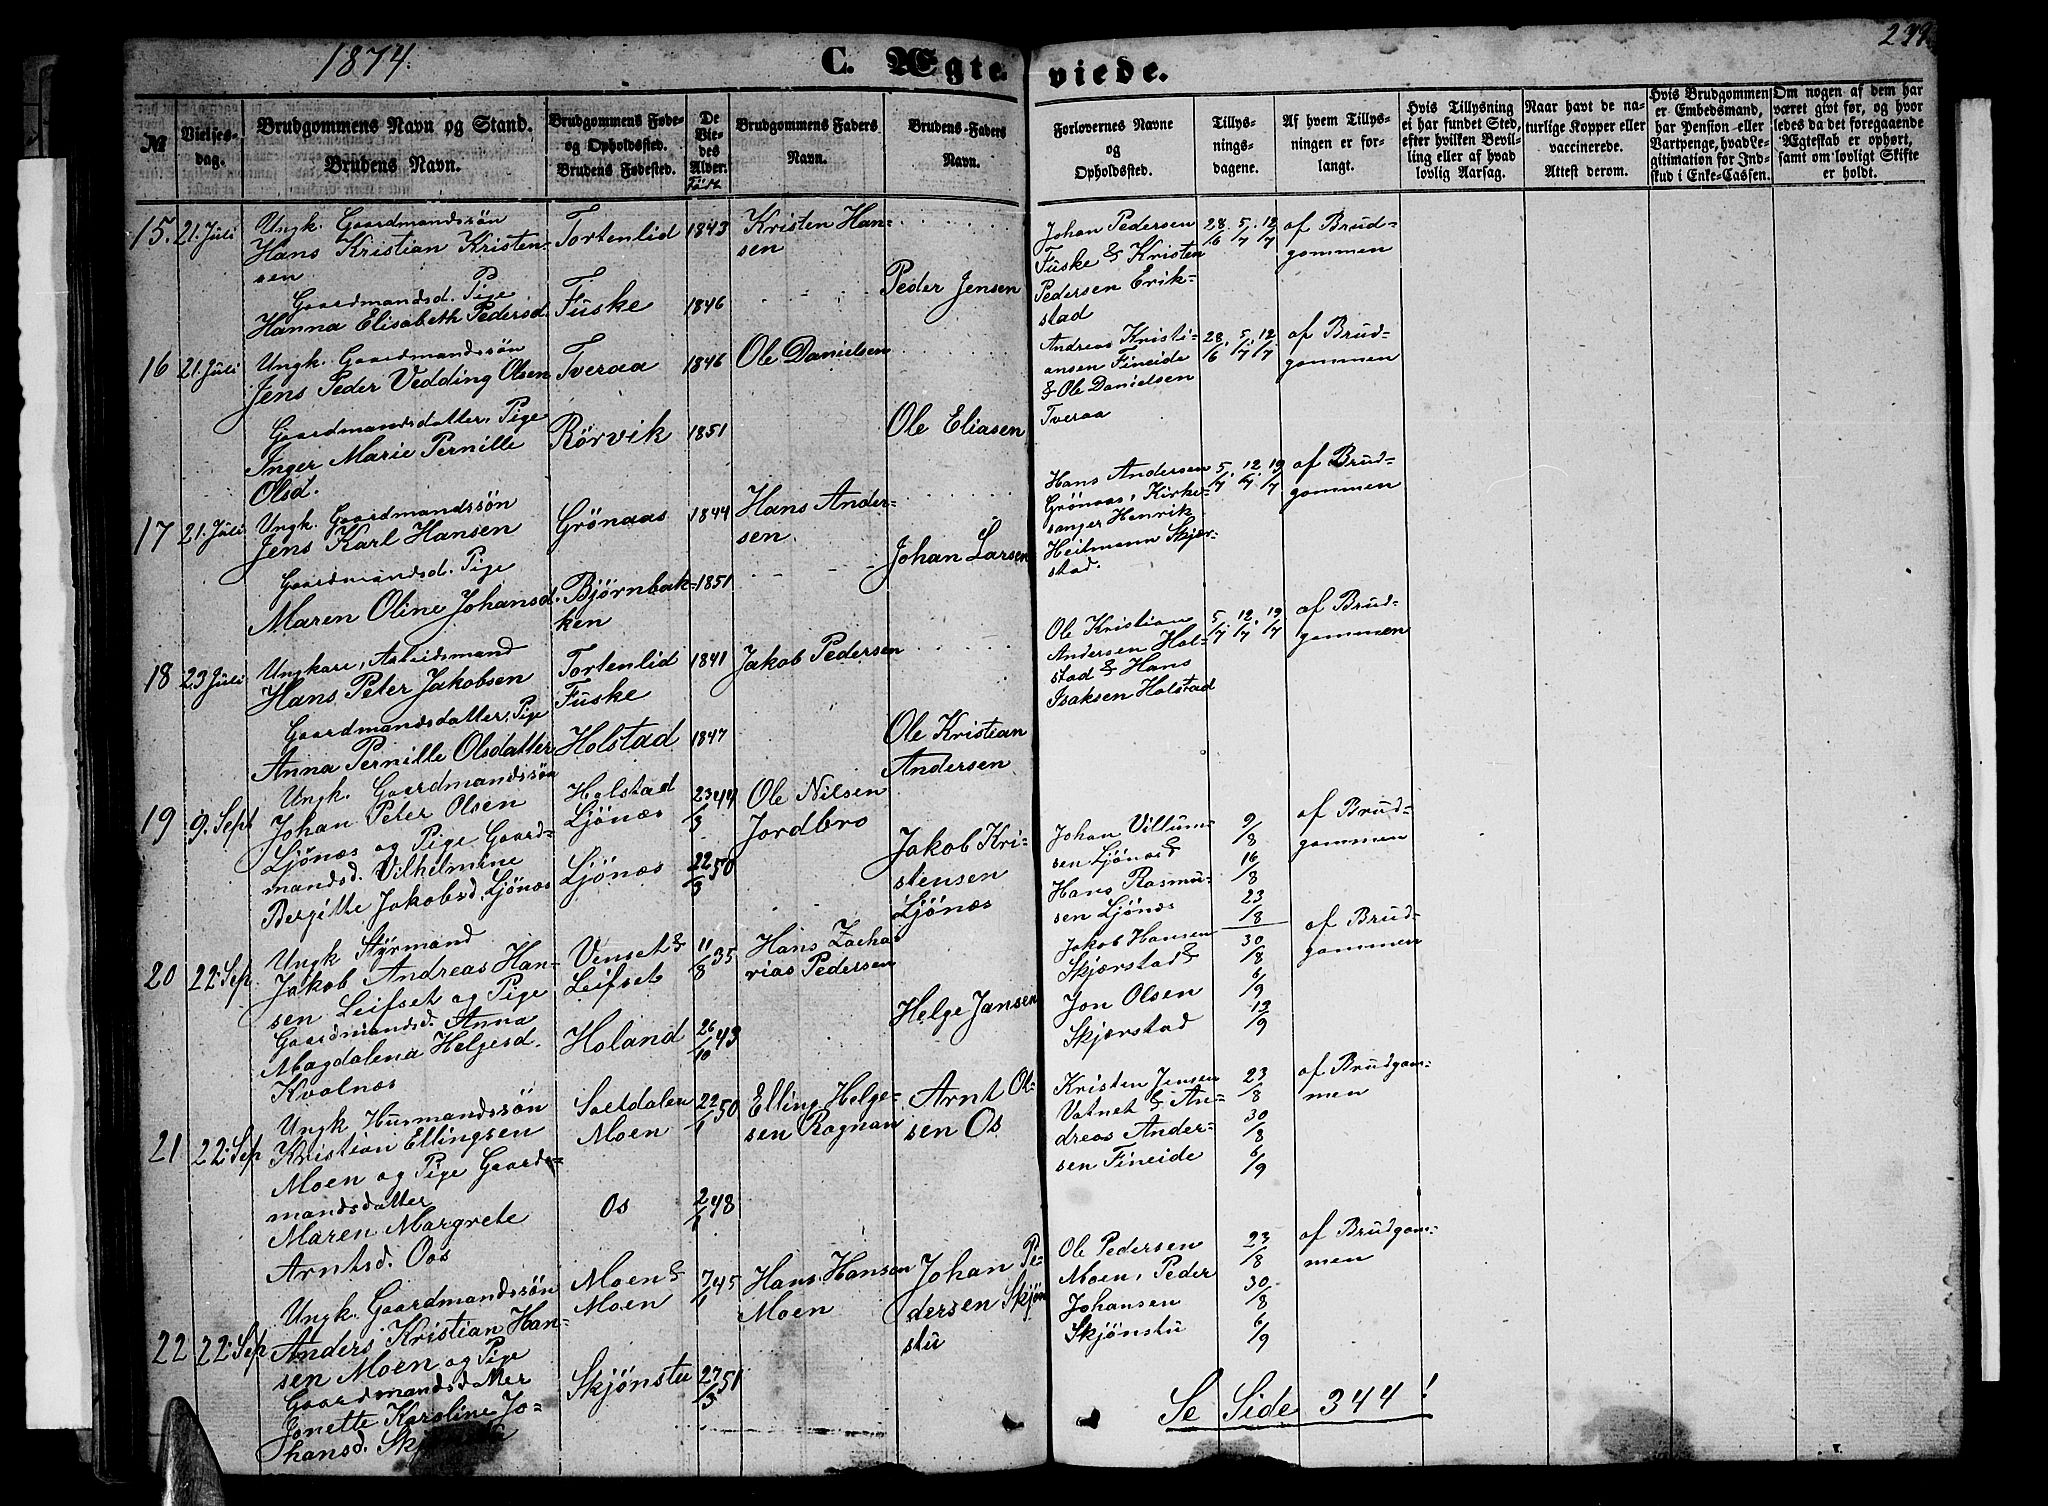 1874.
C. Ægte-
viede.
239
№
Vielses-
dag.
Brudgommens Navn og Stand.
Brudens Navn.
Brudgommens Føde-
og Opholdssted.
Brudens Fødested.
De
Vie-
des
Alder.
Født
Brudgommens Faders
Navn.
Brudens Faders
Navn.
Forlovernes Navne
og
Opholdssted.
Tillys-
nings-
dagene.
Af hvem Tillys-
ningen er for-
langt.
Hvis Tillysning
ei har fundet Sted,
efter hvilken Bevil-
ling eller af hvad
lovlig Aarsag.
Naar havt de na-
turlige Kopper eller
vaccinerede.
Attest derom.
Hvis Brudgommen
er Embedsmand,
har Pension eller
Vartpenge, hvad Le-
gitimation for Ind-
skud i Enke-Cassen.
Om nogen af dem har
været givt før, og hvor
ledes da det foregaaende
Ægteskab er ophørt,
samt om lovligt Skifte
er holdt.
15. 21. Juli
Ungk. Gaardmandssön
Hans Kristian Kristen-
sen
Tortenlid
1843
Kristen Han-
sen
Gaardmandsd. Pige
Hanna Elisabeth Pedersd.
Fuske
1846
Peder Jensen
Johan Pedersen
Fuske & Kristen
Pedersen Erik-
stad
28/6. 5/7. 12/7
af Brud-
gommen
16 21. Juli
Ungk. Gaardmandssön
Jens Peder Vedding Olsen
Tveraa
1846
Ole Danielsen
Gaardmandsdatter, Pige
Inger Marie Pernille
Olsd.
Rörvik
1851
Ole Eliasen
Andreas Kristi-
ansen Fineide
& Ole Danielsen
Tveraa
28/6. 5/7. 12/7
af Brud-
gommen
17 21. Juli
Ungk. Gaardmandssön
Jens Karl Hansen
Grönaas
1844
Hans Ander-
sen
Gaardmandsd. Pige
Maren Oline Johansd.
Bjørnbak-
ken
1851
Johan Larsen
Hans Andersen
Grönaas, Kirke-
sanger Henrik
Heitmann Skjer-
stad.
5/7. 12/7. 19/7
af Brud-
gommen
18 23 Juli
Ungkare, Arbeidsmand
Hans Peter Jakobsen
Tortenlid
Fuske
1841
Jakob Pedersen
Gaardmandsdatter, Pige
Anna Pernille Olsdatter
Holstad
1847
Ole Kristian
Andersen
Ole Kristian
Andersen Hol-
stad & Hans
Isaksen Holstad
5/7. 12/7. 19/7
af Brud-
gommen
19 9. Sept
Ungk. Gaardmandssön
Johan Peter Olsen
Ljönæs og Pige Gaard-
mandsd. Vilhelmine
Bergitte Jakobsd. Ljönæs
Holstad
Ljönæs
Ljönæs
23/3 44
22/3 50
Ole Nilsen
Jordbro
Jakob Kri-
stensen
Ljönæs
Johan Villum-
sen Ljönæs &
Hans Rasmu-
sen Ljönæs
9/8
16/8
23/8
af Brud-
gommen
20 22. Sep.
Ungk Styrmand
Jakob Andreas Han-
sen Leifset og Pige
Gaardmandsd. Anna
Magdalena Helgesd.
Kvalnæs
Venset &
Leifset
Holand
11/8 35
26/10 43
Hans Zacha-
rias Pedersen
Helge Jansen
Jakob Hansen
Skjærstad &
Jon Olsen
Skjærstad
30/8
6/9
13/9
af Brud-
gommen
21 22. Sep
Ungk Husmandssön
Kristian Ellingsen
Moen og Pige Gaard-
mandsdatter
Maren Margrete
Arntsd. Oos
Saltdalen
Moen
Os
22/1 50
2/1 48
Elling Helge-
sen Rognan
Arnt Ol-
sen Os
Kristen Jensen
Vatnet & An-
dreas Ander-
sen Fineide
23/8
30/8
6/9
af Brudgom-
men
22 22. Sep
Ungk. Gaardmandssön
Anders Kristian Han-
sen Moen og Pige
Gaardmandsd Mer
Jonette Karoline Jo-
hansd.
Moen &
Moen
Skjönstu
7/1 45
27/3 51
Hans Hansen
Moen
Johan Pe-
dersen Skjön
stu
Ole Pedersen
Moen, Peder
Johansen
Skjönstu
23/8
30/8
6/9
af Brudgom-
men
Se Side 344!